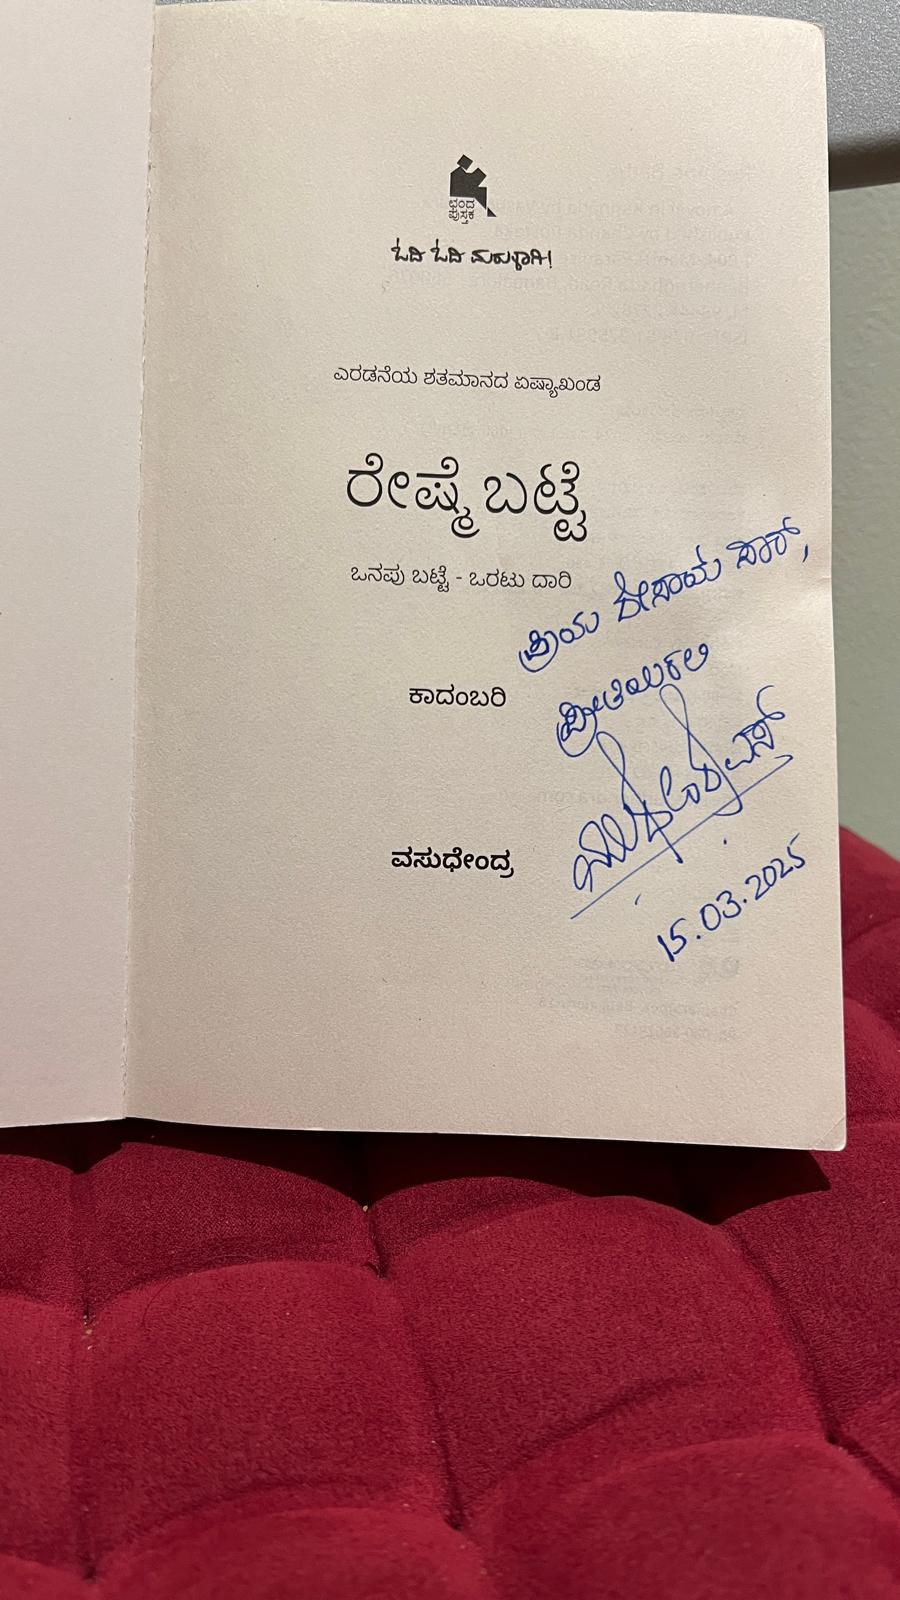 ಛಂದ
ಪುಸ್ತಕ
ಓದಿ ಓದಿ ಮರುಳಾಗಿ!
ಎರಡನೆಯ ಶತಮಾನದ ಏಷ್ಯಾಖಂಡ
ರೇಷ್ಮೆ ಬಟ್ಟೆ
ಒನಪು ಬಟ್ಟೆ - ಒರಟು ದಾರಿ
ಕಾದಂಬರಿ
ವಸುಧೇಂದ್ರ
ಪ್ರಿಯ ಸಾರ್,
ಪ್ರೀತಿಯಿಂದ
15.03.2025